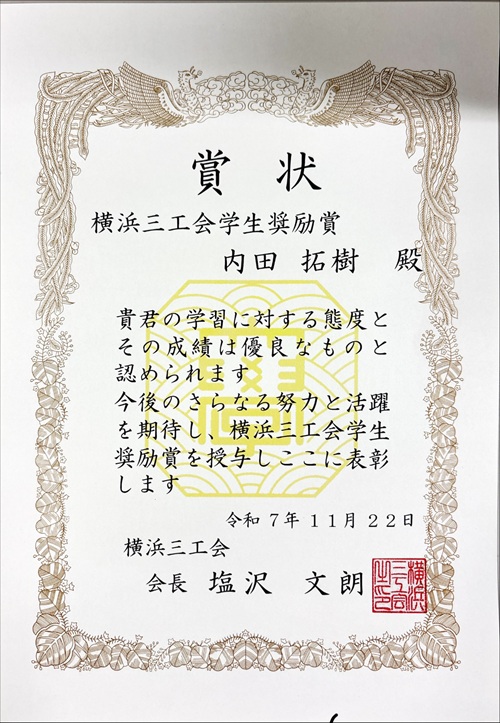 賞 状
横浜三工会学生奨励賞
内田 拓樹 殿
貴君の学習に対する態度と
その成績は優良なものと
認められます
今後のさらなる努力と活躍
を期待し、横浜三工会学生
奨励賞を授与しここに表彰
します
令和 7年 11月 22日
横浜三工会
会長 塩沢 文朗
横浜
三工会
之印